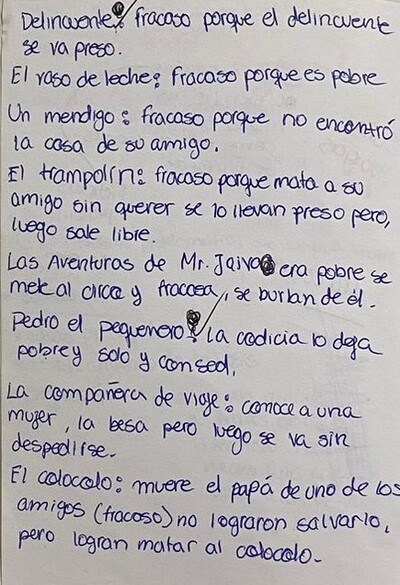 Delincuente: fracaso porque el delincuente
se va preso.
El vaso de leche: fracaso porque es pobre
Un mendigo: fracaso porque no encontró
la casa de su amigo.
El trampolín: fracaso porque mata a su
amigo sin querer se lo llevan preso pero,
luego sale libre.
Las Aventuras de Mr. Jaiva era pobre se
mete al circo y fracasa, se burlan de él.
Pedro el pequenero: la codicia lo deja
pobre y solo y con sed.
La compañera de viaje: conoce a una
mujer, la besa pero luego se va sin
despedirse.
El colocolo: muere el papá de uno de los
amigos (fracaso) no lograron salvarlo,
pero logran matar al colocolo.